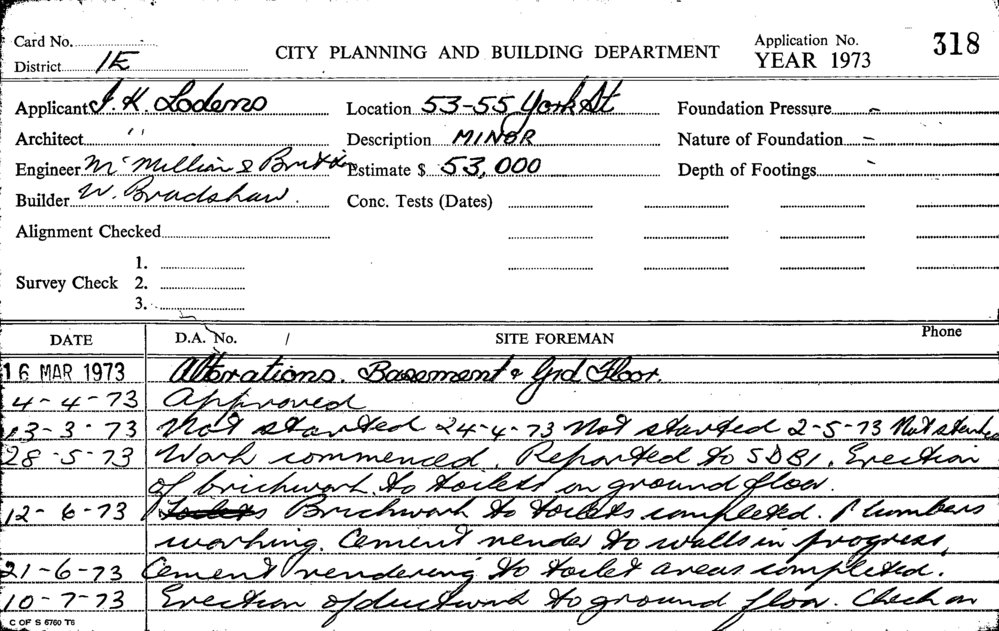 Card No.
District 1E
CITY PLANNING AND BUILDING DEPARTMENT
Application No. 318
YEAR 1973
Applicant J. K. Lodens Location 53-55 York St Foundation Pressure -
Architect " Description MINOR Nature of Foundation -
Engineer McMillian & Britt Estimate $ 53,000 Depth of Footings -
Builder W. Bradshaw. Conc. Tests (Dates)
Alignment Checked
Survey Check 1.
2.
3.
DATE D.A. No. / SITE FOREMAN Phone
16 MAR 1973 Alterations. Basement & Grd Floor.
4-4-73 Approved
13-3-73 Not started 24-4-73 Not started 2-5-73 Not started
28-5-73 Work commenced. Reported to SDBI. Erection
of brickwork to toilets on ground floor.
12-6-73 Brickwork to toilets completed. Plumbers
working. Cement render to walls in progress.
21-6-73 Cement rendering to toilet areas completed.
10-7-73 Erection of ductwork to ground floor. Check on
C OF S 6760 T6